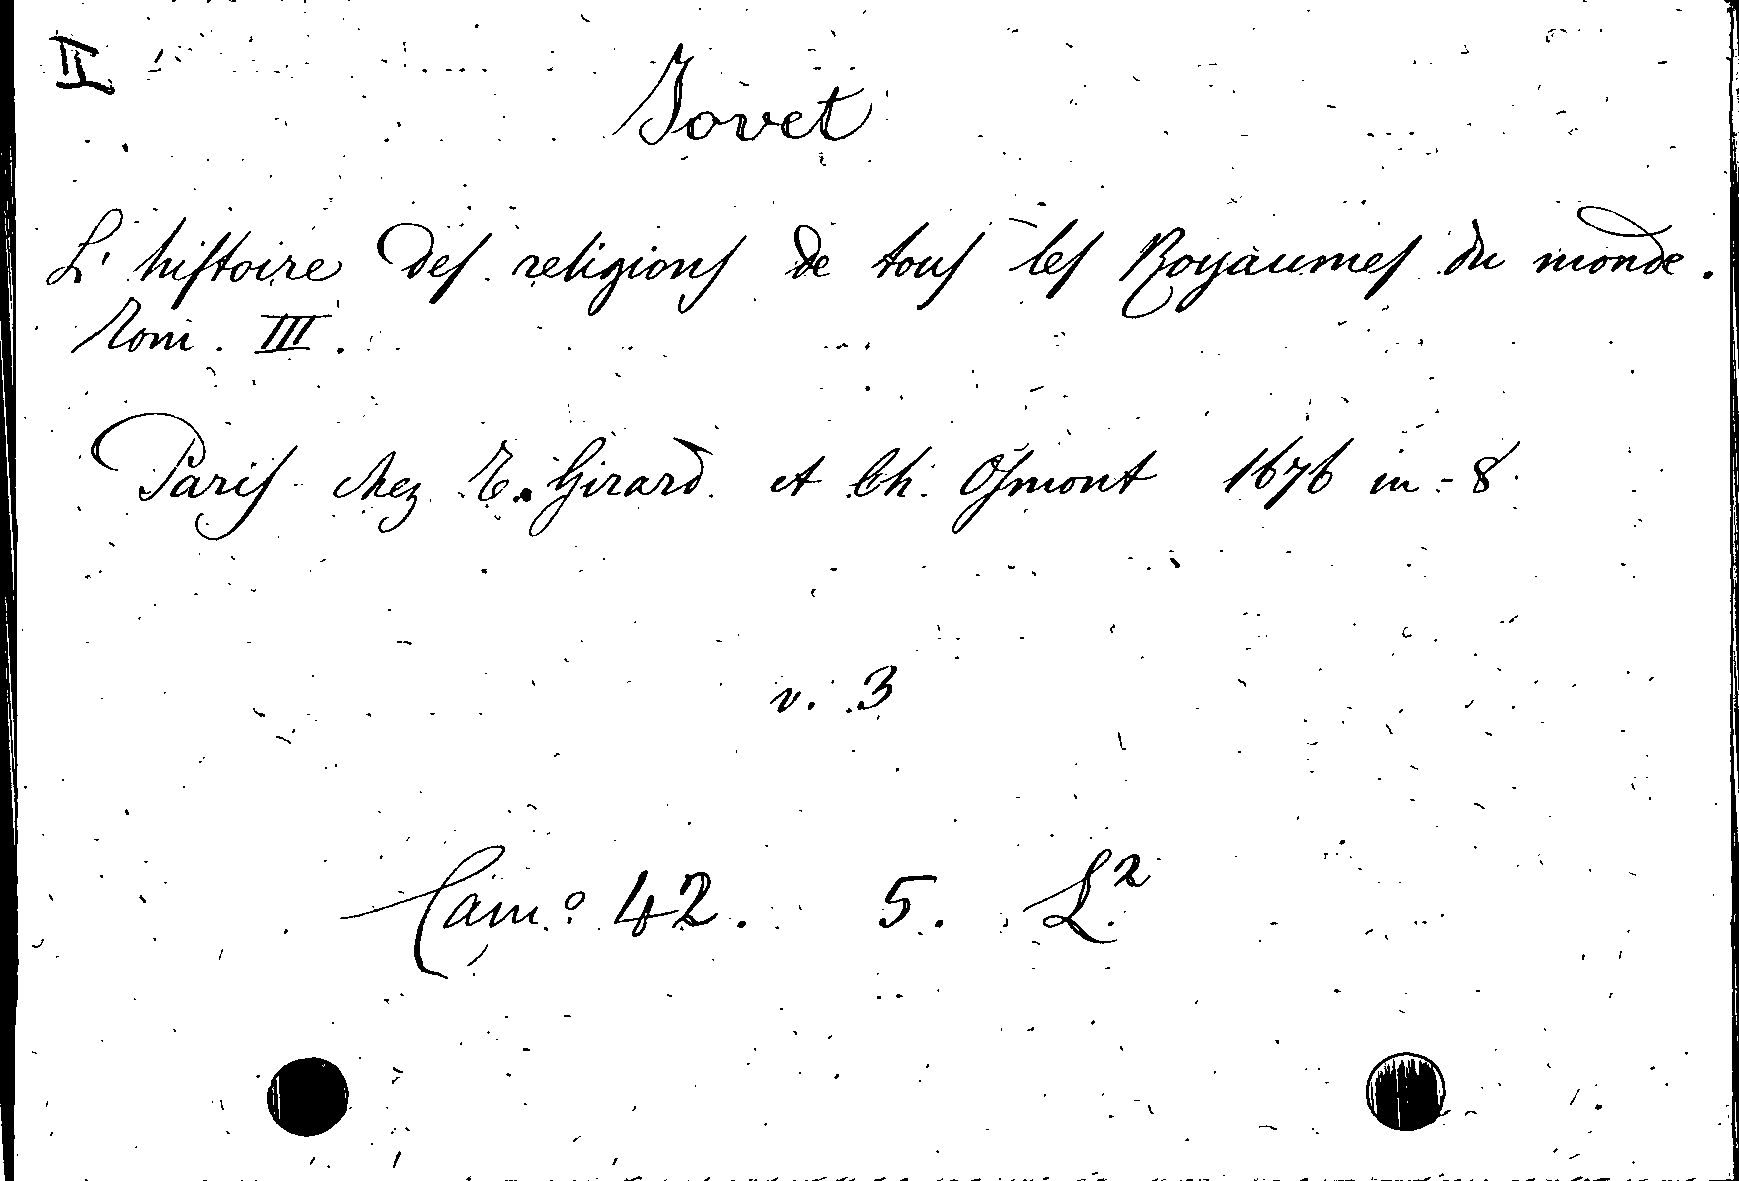 II
Jovet
L'histoire des religions de tous les Royaumes du monde.
Tom. III.
Paris chez T. Girard et Ch. Osmont 1676 in-8.
v. 3
Cam.º 42. 5. L²